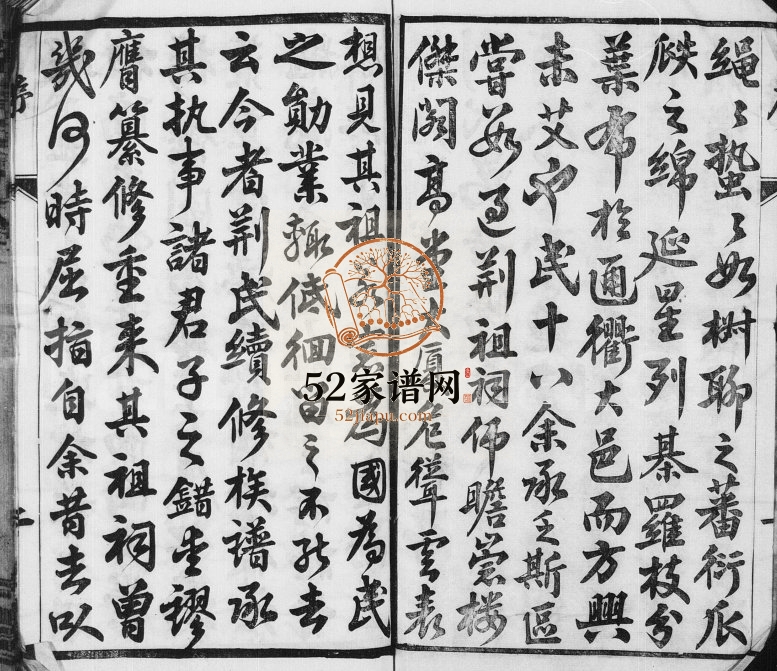 绳〻蛰〻如树聊之蕃衍瓜
瓞之绵延星列棊羅枝分
葉布於通衢大邑而方興
未艾也民十八余承乏斯區
嘗如過荆祖祠仰瞻崇樓
傑閣高堂大厦危聳雲表
想見其祖為國為民
之勛業輒低徊留之不能去
云今者荆民續修族譜承
其执事諸君子之錯爱謬
膺纂修重来其祖祠曾
幾何時屈指自余昔去以
序
52家谱网
52jiapu.com